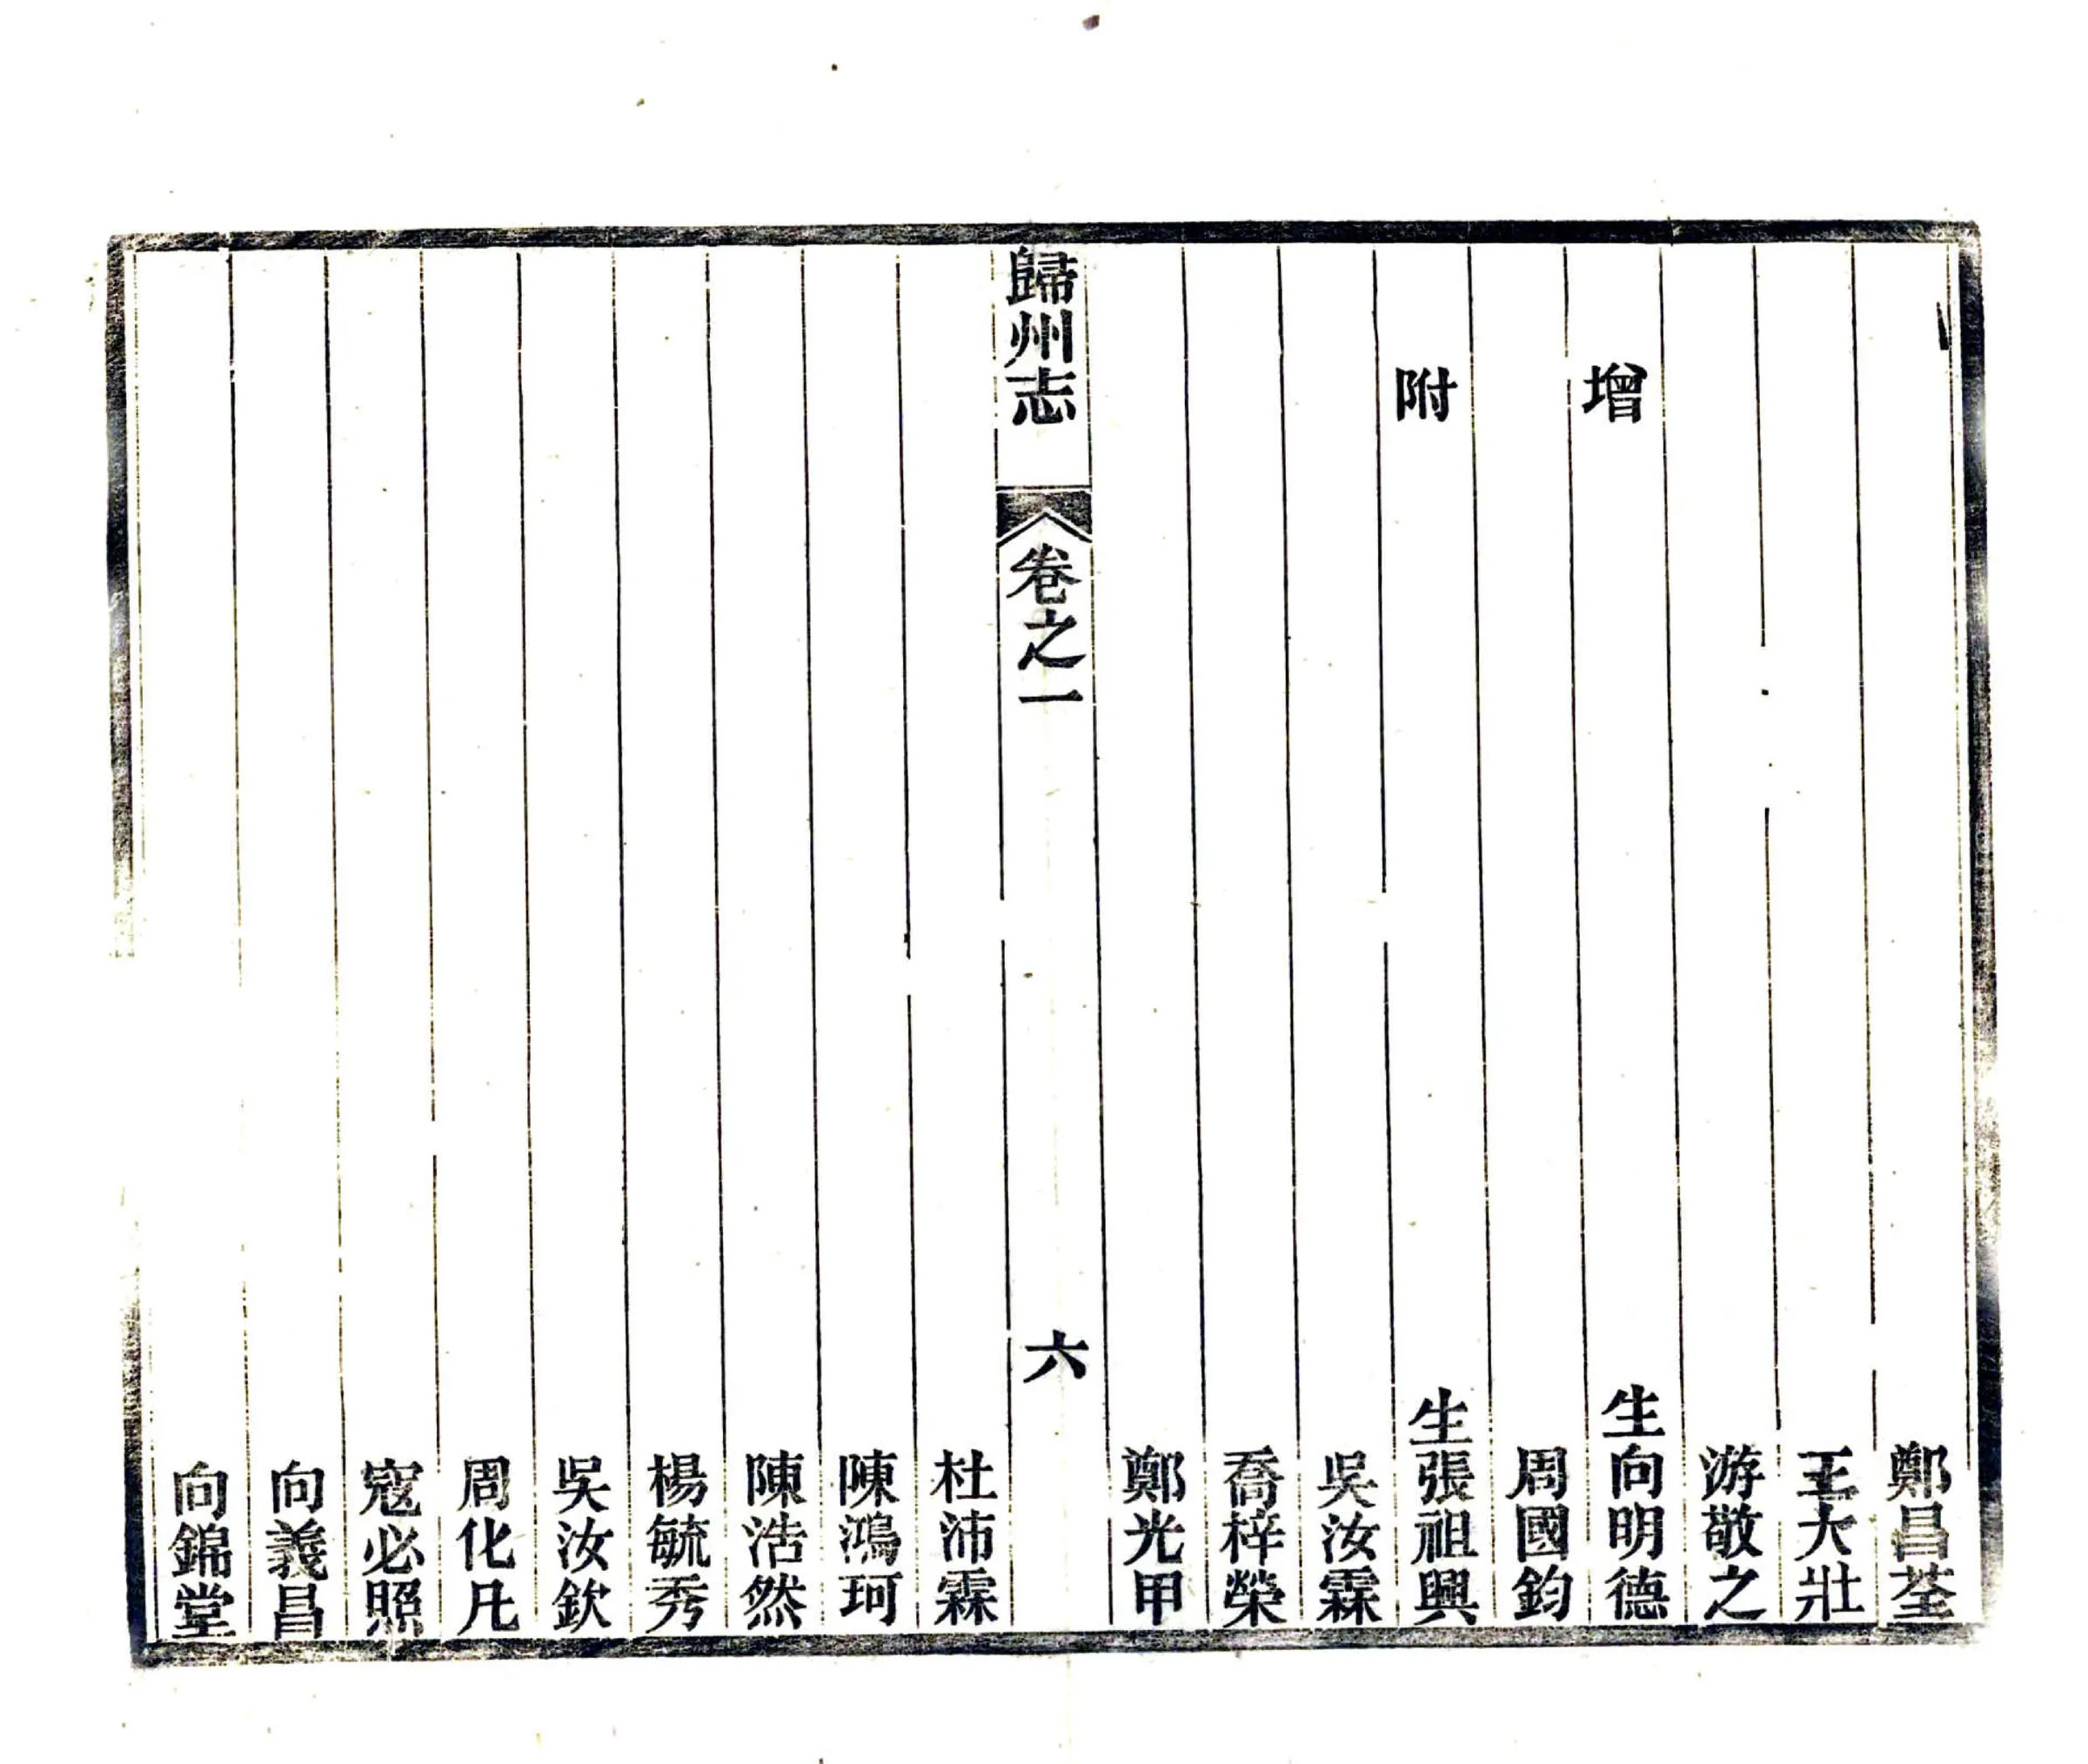 鄭昌荃
王大壯
游敬之
增生向明德
周國鈞
附生張祖興
吳汝霖
喬梓榮
鄭光甲
歸州志 卷之一 六
杜沛霖
陳鴻珂
陳浩然
楊毓秀
吳汝欽
周化凡
寇必照
向義昌
向錦堂